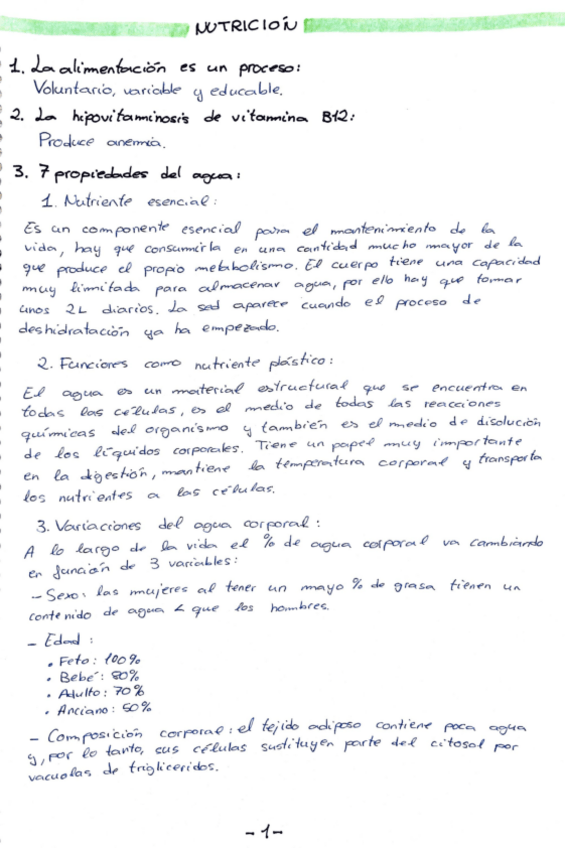 NUTRICIÓN
1. La alimentación es un proceso:
Voluntario, variable y educable.
2. La hipovitaminosis de vitamina B12:
Produce anemia.
3. 7 propiedades del agua:
1. Nutriente esencial:
Es un componente esencial para el mantenimiento de la
vida, hay que consumirla en una cantidad mucho mayor de la
que produce el propio metabolismo. El cuerpo tiene una capacidad
muy limitada para almacenar agua, por ello hay que tomar
unos 2L diarios. La sed aparece cuando el proceso de
deshidratación ya ha empezado.
2. Funciones como nutriente plástico:
El agua es un material estructural que se encuentra en
todas las células, es el medio de todas las reacciones
químicas del organismo y también es el medio de disolución
de los líquidos corporales. Tiene un papel muy importante
en la digestión, mantiene la temperatura corporal y transporta
los nutrientes a las células.
3. Variaciones del agua corporal:
A lo largo de la vida el % de agua corporal va cambiando
en función de 3 variables:
- Sexo: las mujeres al tener un mayo % de grasa tienen un
contenido de agua < que los hombres.
- Edad:
• Feto: 100%
• Bebé: 80%
• Adulto: 70%
• Anciano: 50%
- Composición corporal: el tejido adiposo contiene poca agua
y, por lo tanto, sus células sustituyen parte del citosol por
vacuolas de triglicéridos.
-1-